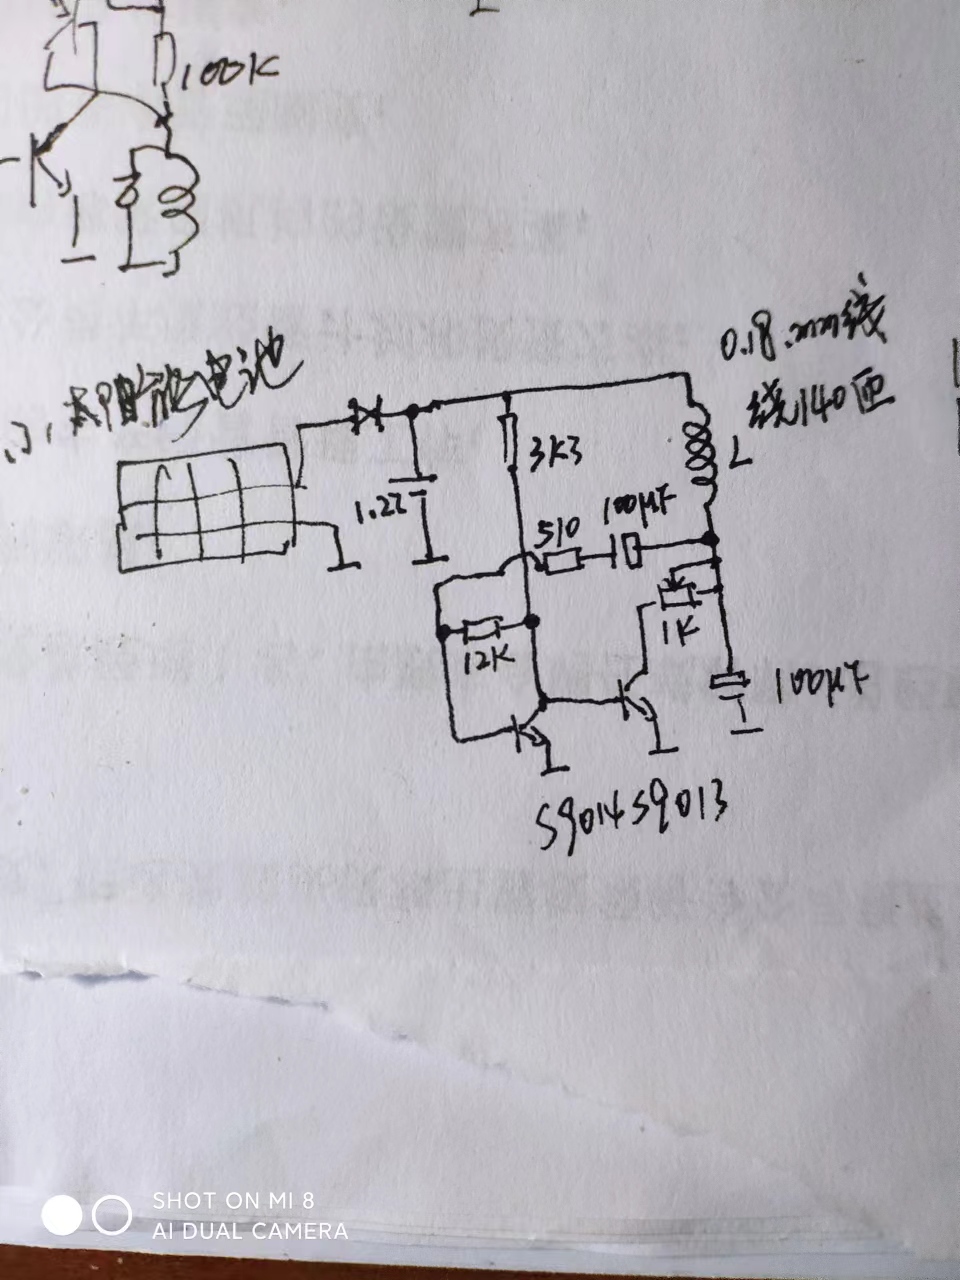 100K
太阳能电池
0.18.mm线
绕140匝
L
3K3
1.2V
510
100μF
1K
12K
100μF
S9014 S9013
SHOT ON MI 8
AI DUAL CAMERA